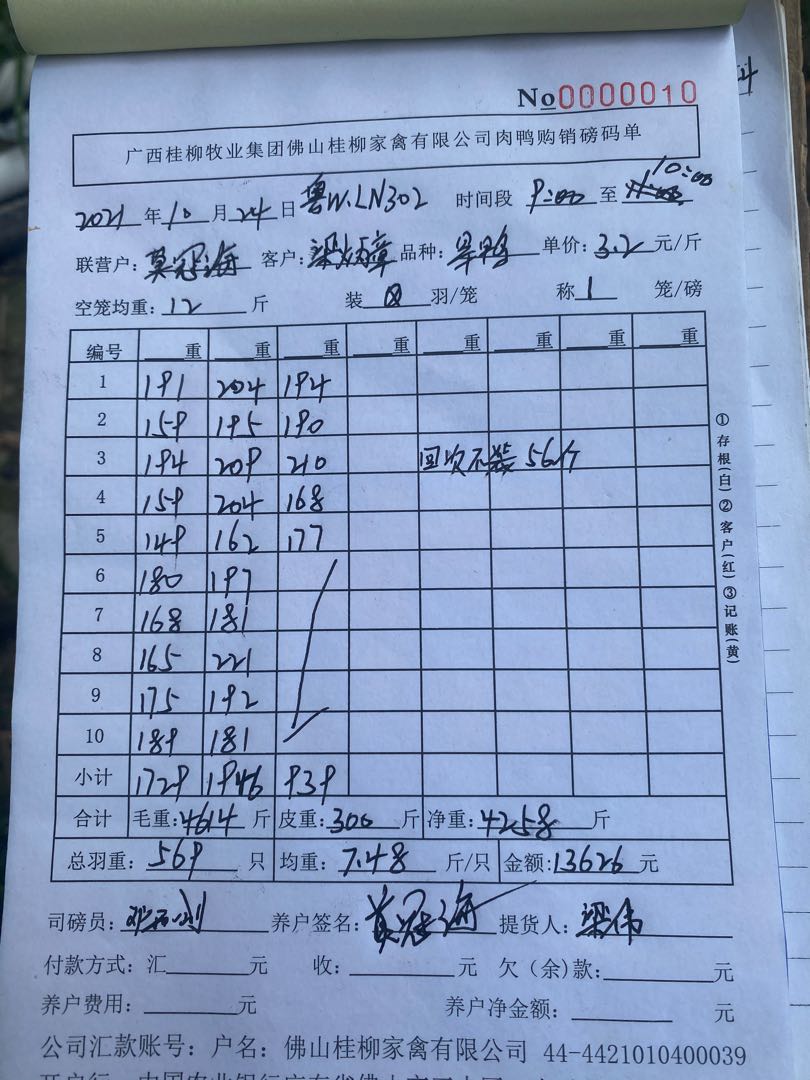 No 0000010
广西桂柳牧业集团佛山桂柳家禽有限公司肉鸭购销磅码单
2021年10月24日 粤W.LN302 时间段 9:00 至 10:00
联营户:莫冠海 客户:梁炳章 品种:旱鸭 单价:3.2元/斤
空笼均重:12斤 装 羽/笼 称1笼/磅
编号 重 重 重 重 重 重 重 重
1 191 204 194
2 159 195 190
3 194 209 210 回收不装56个
4 159 204 168
5 149 162 177
6 180 197
7 168 181
8 165 221
9 175 192
10 189 181
小计 1729 1946 939
合计 毛重:4614斤 皮重:300斤 净重:4258斤
总羽重:569只 均重:7.48斤/只 金额:13626元
司磅员: 养户签名:莫冠海 提货人:梁伟
付款方式:汇 元 收: 元 欠(余)款: 元
养户费用: 元 养户净金额: 元
公司汇款账号:户名:佛山桂柳家禽有限公司 44-4421010400039
①存根(白)②客户(红)③记账(黄)